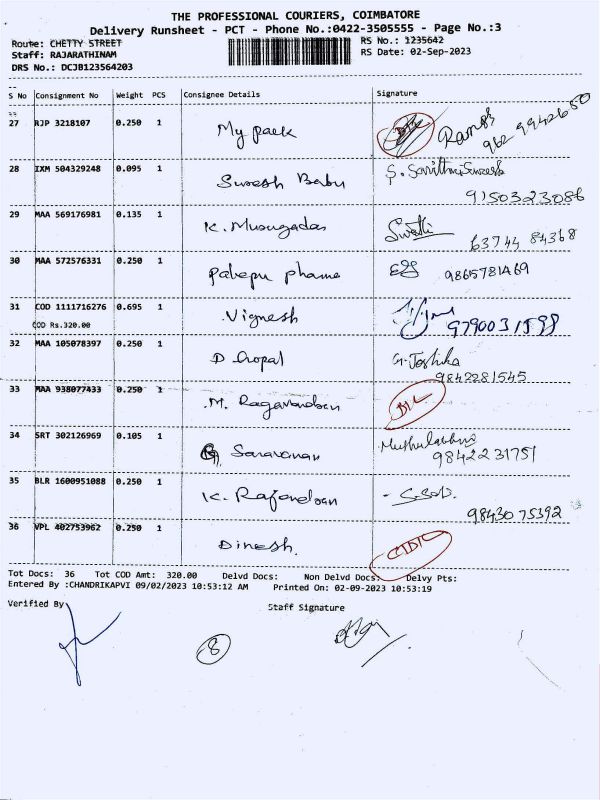 THE PROFESSIONAL COURIERS, COIMBATORE
Delivery Runsheet - PCT - Phone No.:0422-3505555 - Page No.:3
Route: CHETTY STREET
RS No.: 1235642
Staff: RAJARATHINAM
RS Date: 02-Sep-2023
DRS No.: DCJB123564203
S No Consignment No Weight PCS Consignee Details Signature
27 RJP 3218107 0.250 1 My pack Ramesh
962 9942650
28 IXM 504329248 0.095 1 Suresh Babu S. Savithri Suresh
9150323086
29 MAA 569176981 0.135 1 K. Murugadas Swathi
63744 84368
30 MAA 572576331 0.250 1 9865781469
31 COD 1111716276 0.695 1 Vignesh 9790031598
COD Rs.320.00
32 MAA 105078397 0.250 1 D Gopal G. Joshika
9842281545
33 MAA 938077433 0.250 1 M.
34 SRT 302126969 0.105 1 Saravanan Muthulakshmi
9842231751
35 BLR 1600951088 0.250 1 K.
9843075392
36 VPL 402753962 0.250 1 Dinesh.
Tot Docs: 36 Tot COD Amt: 320.00 Delvd Docs: Non Delvd Docs: Delvy Pts:
Entered By :CHANDRIKAPVI 09/02/2023 10:53:12 AM Printed On: 02-09-2023 10:53:19
Verified By
Staff Signature
8